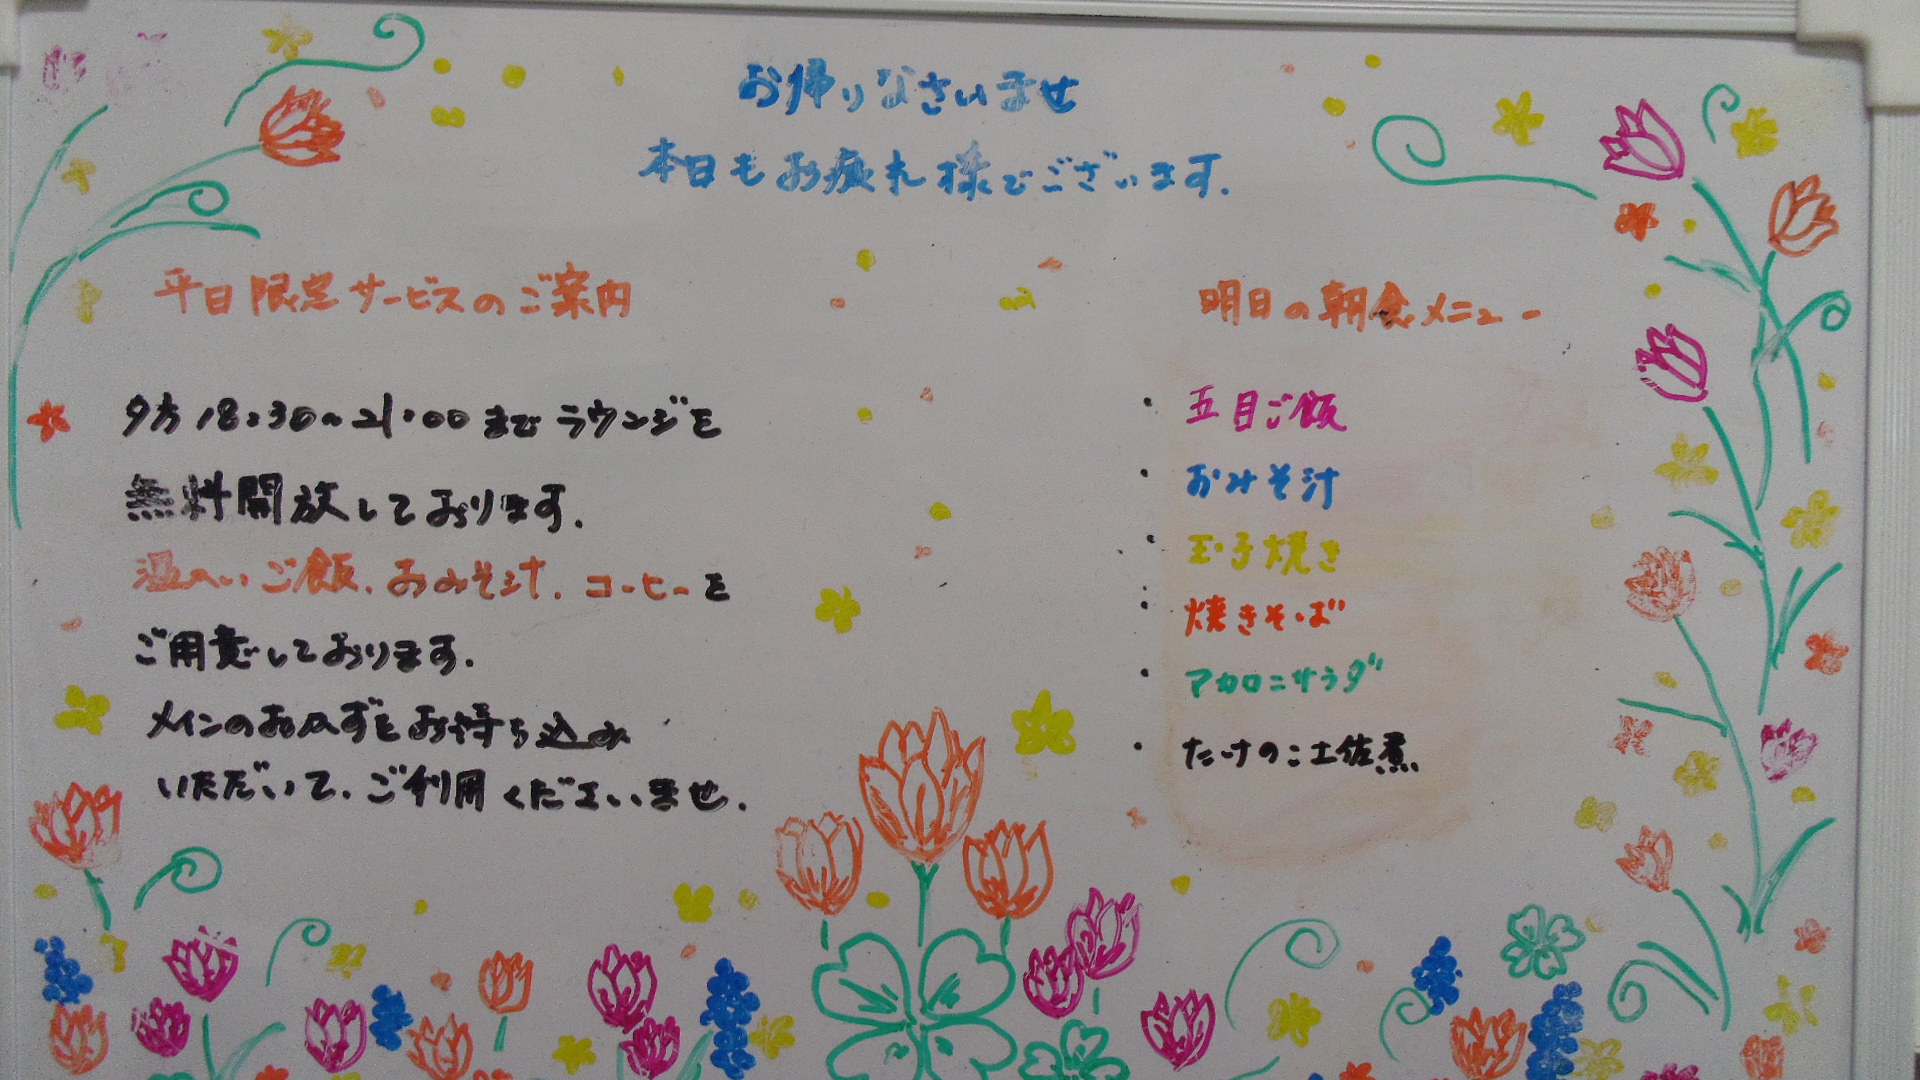 お帰りなさいませ
本日もお疲れ様でございます.
平日限定サービスのご案内
夕方18:30~21:00までラウンジを
無料開放しております.
温かいご飯.おみそ汁.コーヒーを
ご用意しております.
メインのおかずをお持ち込み
いただいて.ご利用くださいませ.
明日の朝食メニュー
・五目ご飯
・おみそ汁
・玉子焼き
・焼きそば
・マカロニサラダ
・たけのこ土佐煮